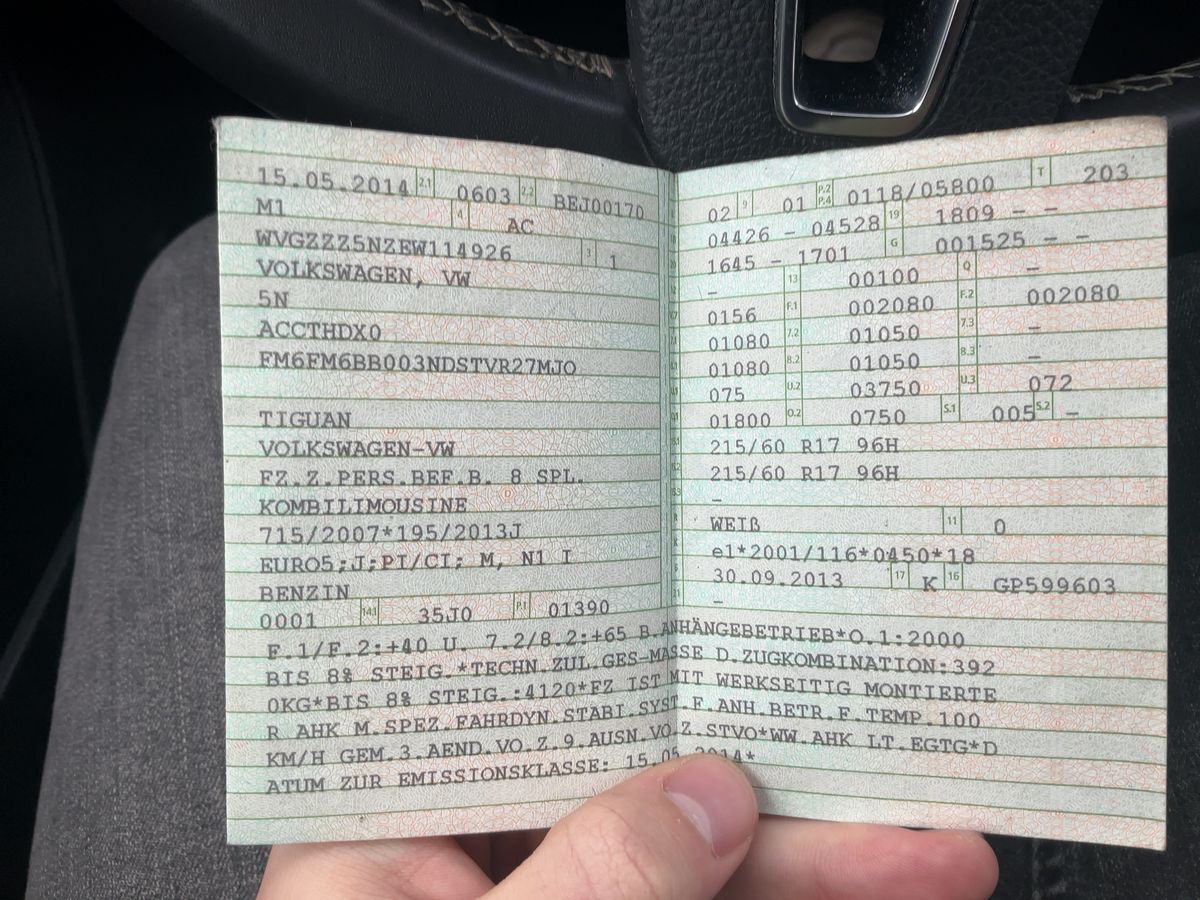 15.05.2014 2.1 0603 2.2 BEJ00170
M1 4 AC
WVGZZZ5NZEW114926 3 1
VOLKSWAGEN, VW
5N
ACCTHDX0
FM6FM6BB003NDSTVR27MJO
TIGUAN
VOLKSWAGEN-VW
FZ.Z.PERS.BEF.B. 8 SPL.
KOMBILIMOUSINE
715/2007*195/2013J
EURO5;J;PI/CI; M, N1 I
BENZIN
0001 14.1 35J0 P.1 01390
02 9 01 P.2 P.4 0118/05800 T 203
04426 - 04528 19 1809 - -
1645 - 1701 G 001525 - -
- 13 00100 Q -
0156 F.1 002080 F.2 002080
01080 7.2 01050 7.3 -
01080 8.2 01050 8.3 -
075 U.2 03750 U.3 072
01800 O.2 0750 S.1 005 S.2 -
215/60 R17 96H
215/60 R17 96H
-
WEIß 11 0
e1*2001/116*0450*18
30.09.2013 17 K 16 GP599603
-
F.1/F.2:+40 U. 7.2/8.2:+65 B.ANHÄNGEBETRIEB*O.1:2000
BIS 8% STEIG.*TECHN.ZUL.GES-MASSE D.ZUGKOMBINATION:392
0KG*BIS 8% STEIG.:4120*FZ IST MIT WERKSEITIG MONTIERTE
R AHK M.SPEZ.FAHRDYN.STABI.SYST.F.ANH.BETR.F.TEMP.100
KM/H GEM.3.AEND.VO.Z.9.AUSN.VO.Z.STVO*WW.AHK LT.EGTG*D
ATUM ZUR EMISSIONSKLASSE: 15.05.2014*